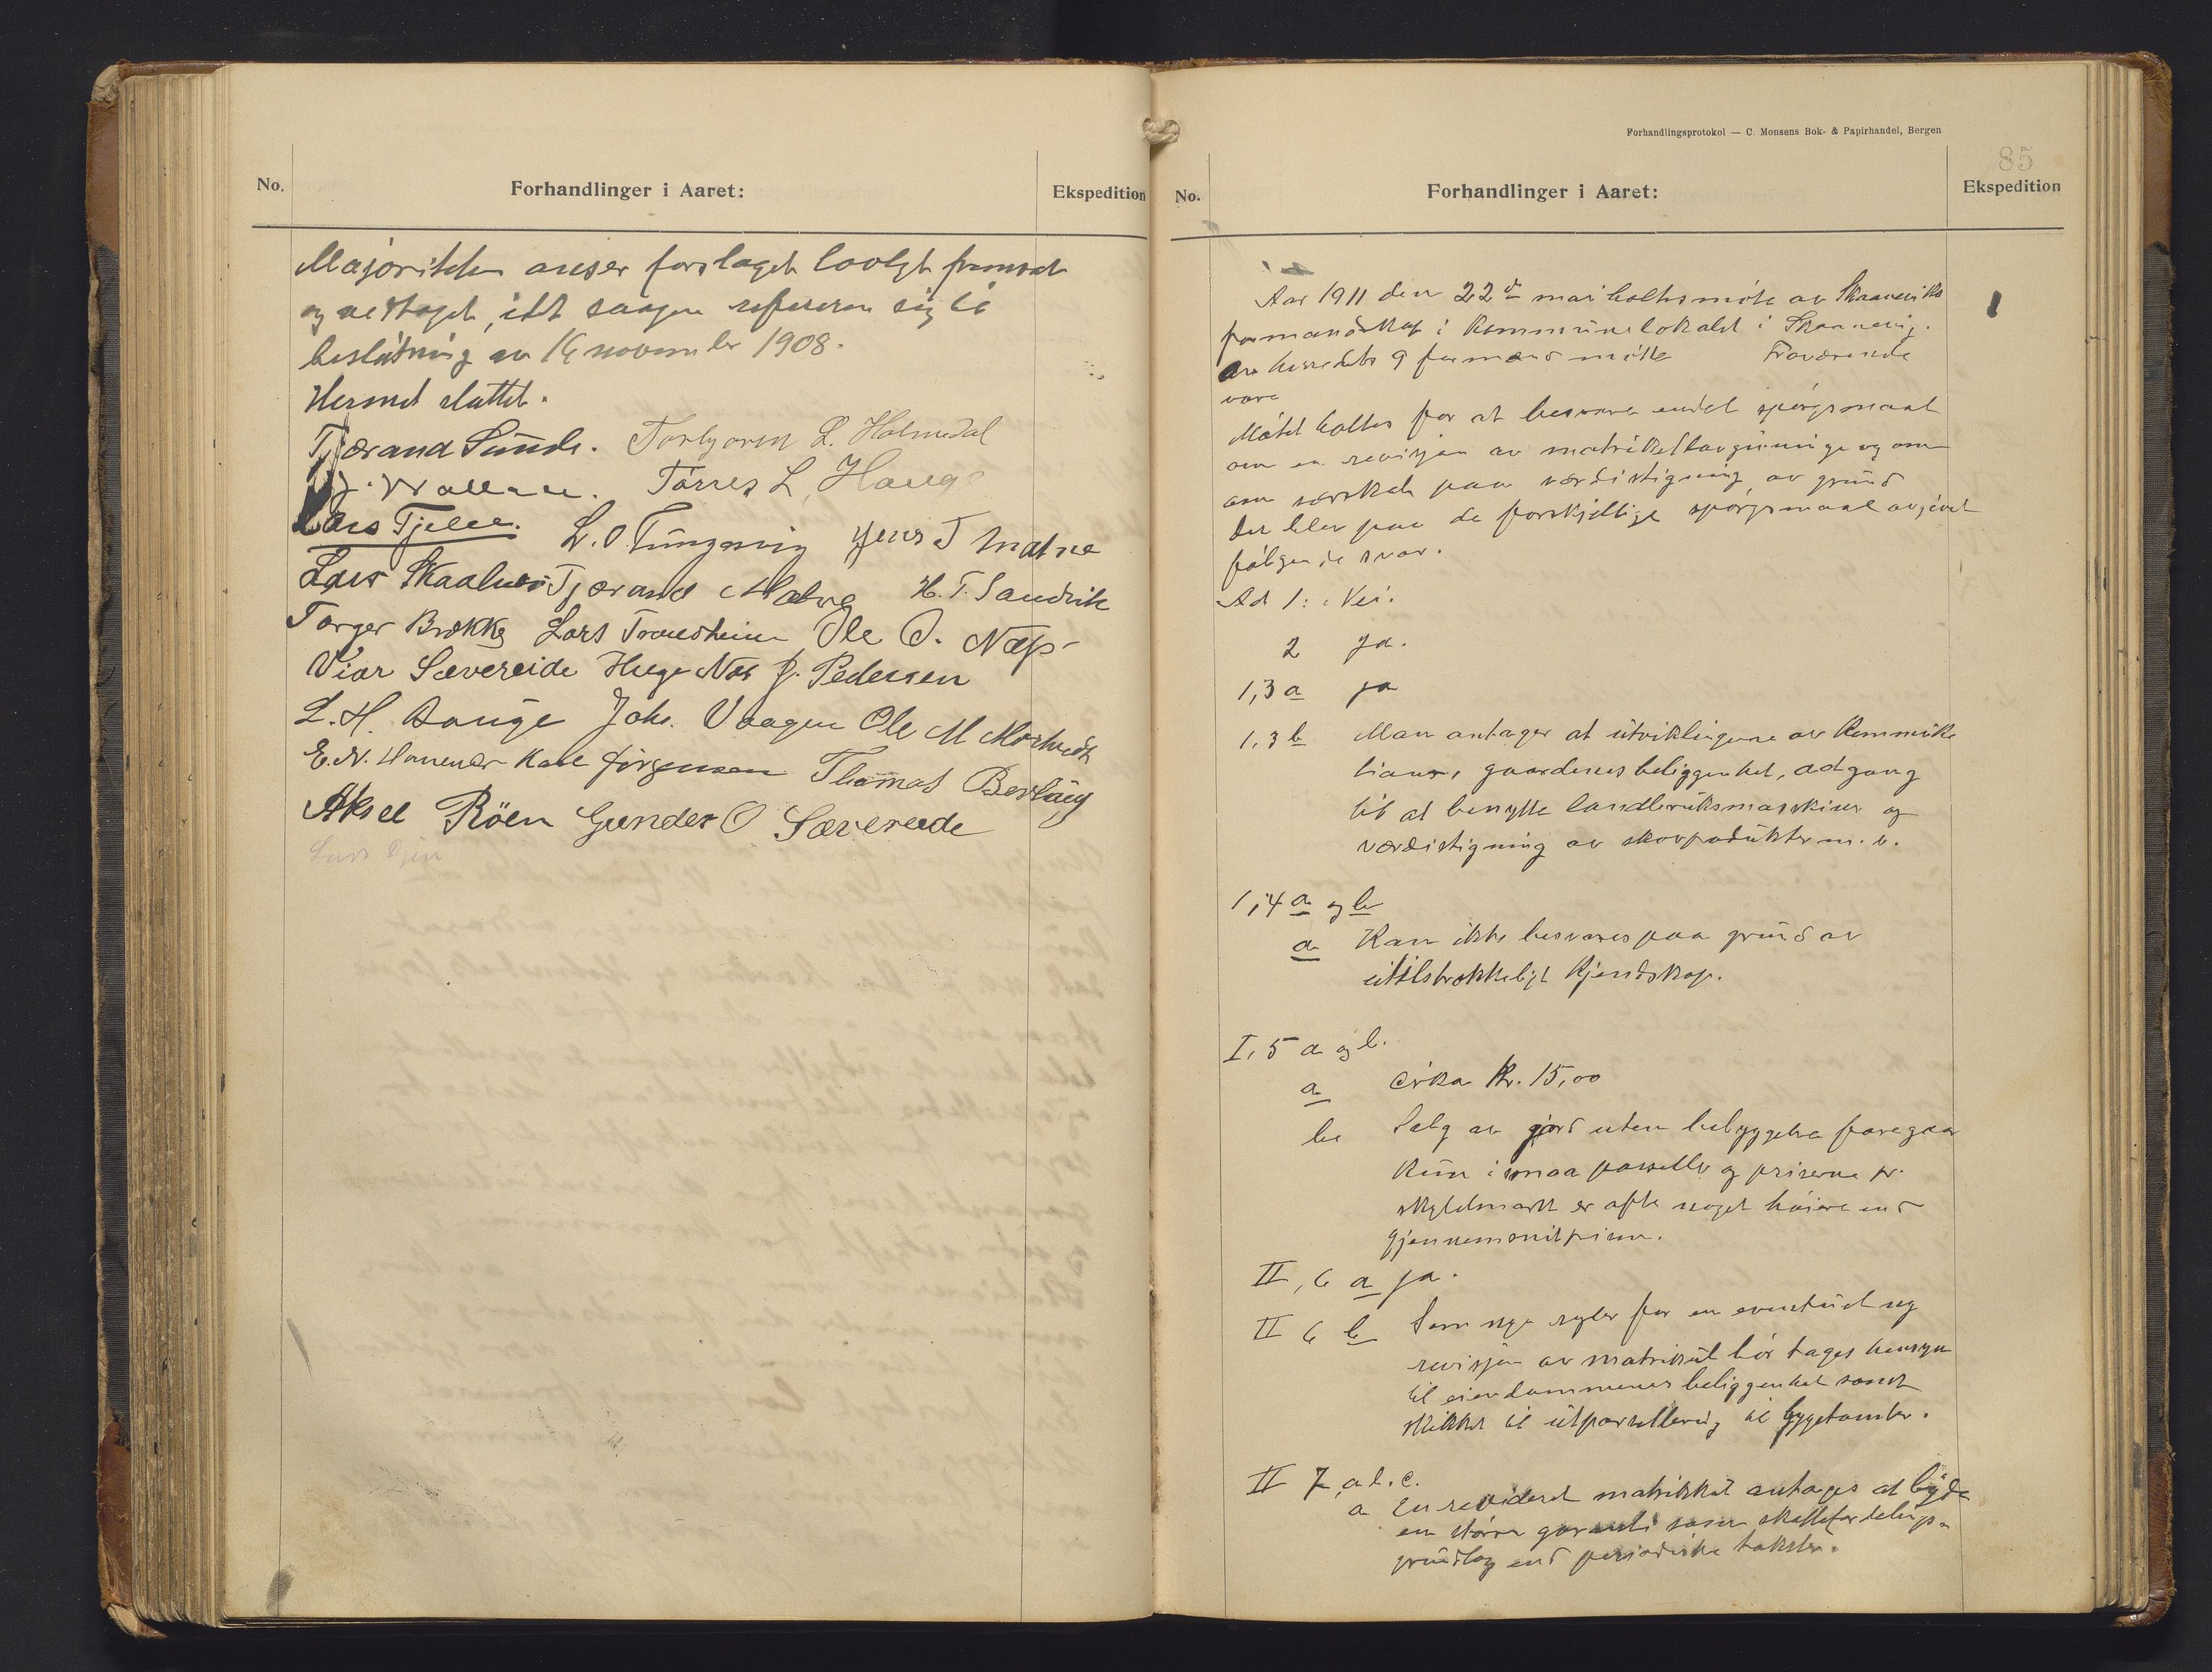 No.
Forhandlinger i Aaret:
Ekspedition
Majoriteten anser forslaget lovligt fremsat
og vedtaget, idet saagen refererer sig til
beslutning av 14 november 1908.
Hermed sluttet.
Tjærand Sunde. Torbjørn L. Holmedal
Tørres L. Hauge
Lars Tjelle. L. O. Tungesvig Jens T Matne
Lars Skaalnes Tjærand Matre H. T. Sandvik
Torger Brekke Lars Tronesheim Ole O. Næs
Viar Sævereide Helge Næs J. Pedersen
L. H. Bauge Johs. Vaagen Ole M Mortveit
E. N. Karl Jørgensen Thomas Berhaug
Aksel Röen Gunder O Sævereide
Lars
Forhandlingsprotokol — C. Monsens Bok- & Papirhandel, Bergen
85
No.
Forhandlinger i Aaret:
Ekspedition
Aar 1911 den 22de mai holtes møte av Skaaneviks
formandskap i kommunelokalet i Skaanevig.
Av herredets 9 formænd møtte Fraværende
vare
Møtet holtes for at besvare endel spørgsmaal
om en revisjon av matrikellovgivningen og om
om særskat paa værdistigning av grund
Der blev paa de forskjellige spørgsmaal avgivet
følgende svar.
Ad 1: Nei.
2 Ja.
1,3 a ja
1,3 b Man antager at utviklingene av kommunika
tioner, gaardenes beliggenhet, adgang
til at benytte landbruksmaskiner og
værdistigning av skovprodukter m. v.
1,4 a og b
a Kan ikke besvares paa grund av
utilstrækkeligt kjendskap.
I, 5 a og b.
a cirka kr. 15,00
b Salg av jord uten bebyggelse foregaar
kun i smaa parseller og priserne pr.
skyldmark er ofte noget høiere end
gjennemsnitprisen.
II, 6 a ja.
II 6 b Som nye regler for en eventuel ny
revisjon av matrikul bør tages hensyn
til eiendommenes beliggenhet samt
skikket til utparsellering til byggetomter.
II 7 a b. c.
a En revideret matrikkul antages at byde
en større garanti som skattefordelings-
grundlag end periodiske takster.